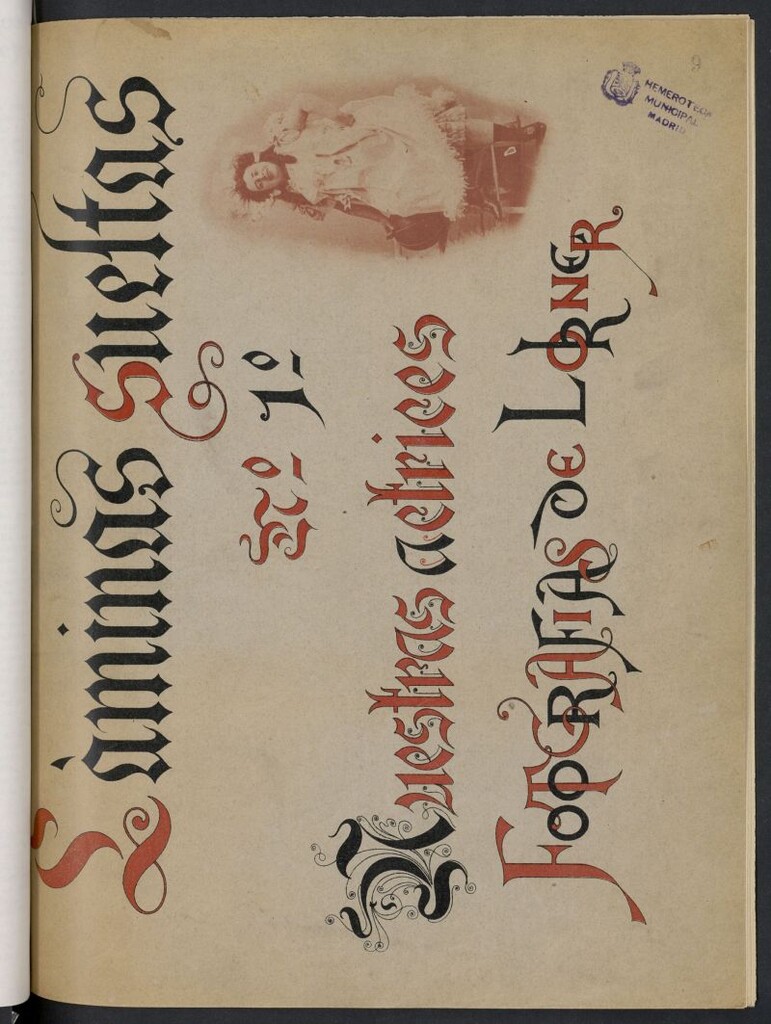 Láminas Sueltas
1º
Nuestras actrices
FOTOGRAFIAS DE LOKNER
HEMEROTECA
MUNICIPAL
MADRID
9